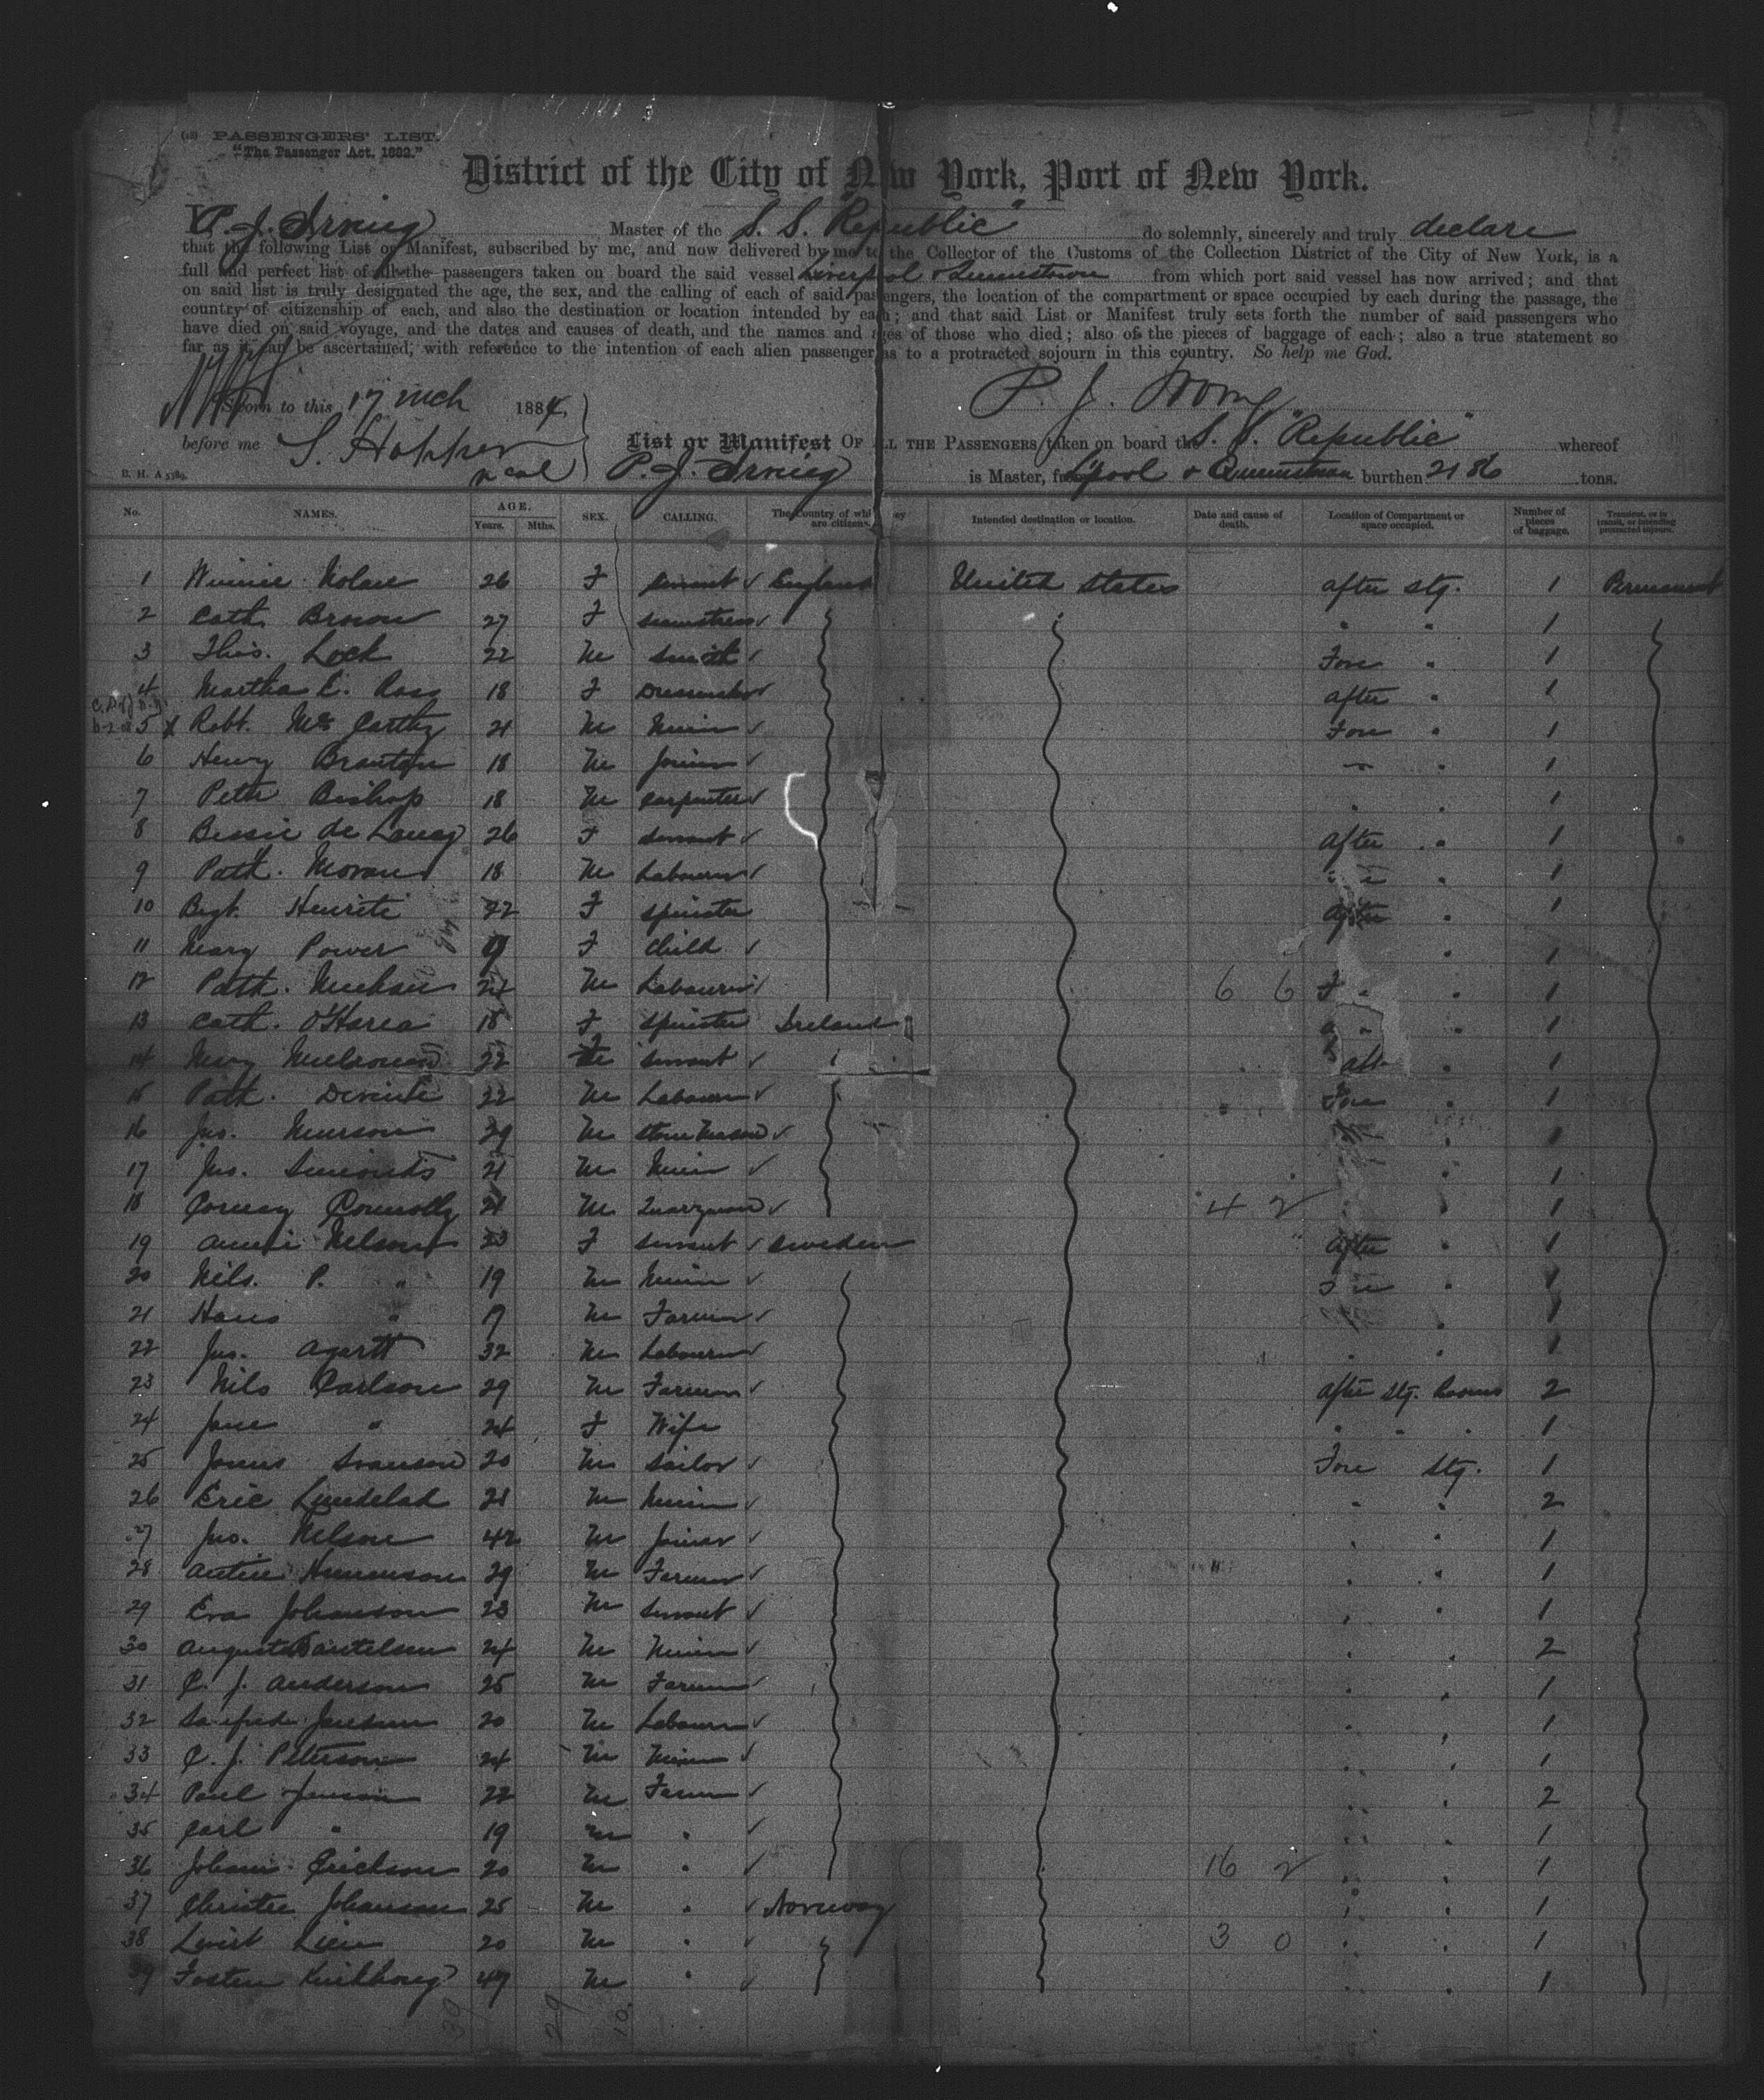 (18) PASSENGERS' LIST.
"The Passenger Act, 1882."
District of the City of New York, Port of New York.
I, P. J. Irving Master of the S. S. "Republic" do solemnly, sincerely and truly declare
that the following List or Manifest, subscribed by me, and now delivered by me to the Collector of the Customs of the Collection District of the City of New York, is a
full and perfect list of all the passengers taken on board the said vessel Liverpool & Queenstown from which port said vessel has now arrived; and that
on said list is truly designated the age, the sex, and the calling of each of said passengers, the location of the compartment or space occupied by each during the passage, the
country of citizenship of each, and also the destination or location intended by each; and that said List or Manifest truly sets forth the number of said passengers who
have died on said voyage, and the dates and causes of death, and the names and ages of those who died; also of the pieces of baggage of each; also a true statement so
far as it can be ascertained, with reference to the intention of each alien passenger as to a protracted sojourn in this country. So help me God.
Sworn to this 17 mch 1884, P. J. Irving
before me S. Hopper List or Manifest OF ALL THE PASSENGERS taken on board the S. S. "Republic" whereof
P. J. Irving is Master, from L'pool & Queenstown burthen 2186 tons.
No. NAMES. AGE. Years. Mths. SEX. CALLING. The Country of which they are citizens. Intended destination or location. Date and cause of death. Location of Compartment or space occupied. Number of pieces of baggage. Transient, or in transit, or intending protracted sojourn.
1 Winnie Nolan 26 F servant England United States after stg. 1 Permanent
2 Cath. Brown 27 F seamstress " " 1
3 Thos. Lock 22 M smith Fore " 1
4 Martha E. Ross 18 F Dressmaker after " 1
5 x Robt. McCarthy 21 M Miner Fore " 1
6 Henry Branton 18 M Joiner " " 1
7 Peter Bishop 18 M Carpenter " " 1
8 Bessie de Lacey 26 F servant After " 1
9 Patk. Moran 18 M Labourer " 1
10 Bigt. 22 F spinster after " 1
11 Mary Power 9 F child " 1
12 Patk. Meehan 24 M Labourer 6 6 F " 1
13 Cath. O'Harea 18 F spinster Ireland " 1
14 Mary 22 F servant aft " 1
15 Patk. 22 M Labourer Fore " 1
16 Jno. 29 M stone Mason
17 Jno. Simonds 21 M Miner 1
18 Connolly 21 M Quarryman 4 2 " 1
19 Annie Nelson 23 F servant Sweden After " 1
20 Nils. P. " 19 M Miner Fore " 1
21 Hans " 17 M Farmer " 1
22 Jno. Agartt 32 M Labourer " " 1
23 Nils Carlson 29 M Farmer after stg. Rooms 2
24 Jane " 24 F Wife " " " 1
25 Jonas Swanson 20 M Sailor Fore stg. 1
26 Eric Lundelad 21 M Miner " " 2
27 Jno. Nelson 42 M Joiner " 1
28 29 M Farmer " " 1
29 Eva Johanson 23 M servant " " 1
30 August 24 M Miner " " 2
31 C. J. Anderson 25 M Farmer " " 1
32 20 M Labourer " " 1
33 C. J. Peterson 24 M Miner " " 1
34 Paul Jonson 22 M Farmer " " 2
35 Carl " 19 M " " " 1
36 Erickson 20 M " 16 2 " " 1
37 Christie Johanson 25 M " Norway " " 1
38 Lien 20 M " 3 0 " " 1
39 47 M " " " 1
39 29 10.